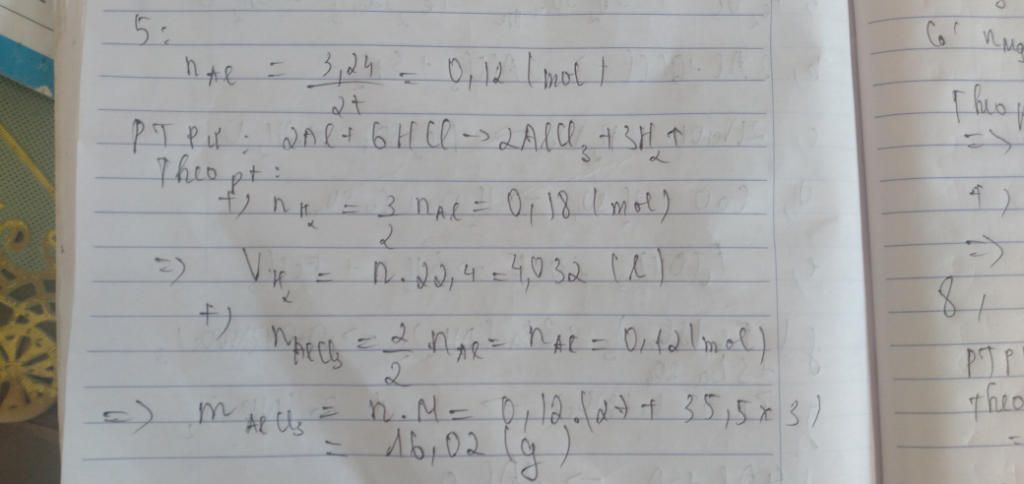 5:
n Al = 3,24 / 27 = 0,12 (mol)
PTPƯ: 2Al + 6HCl → 2AlCl3 + 3H2↑
Theo pt:
+) nH2 = 3/2 nAl = 0,18 (mol)
=> VH2 = n.22,4 = 4,032 (l)
+)
nAlCl3 = 2/2 .nAl = nAl = 0,12 (mol)
=> mAlCl3 = n.M = 0,12.(27 + 35,5 x 3)
= 16,02 (g)
Có nMg
Theo p
=>
+)
=>
8,
PTP
Theo
=